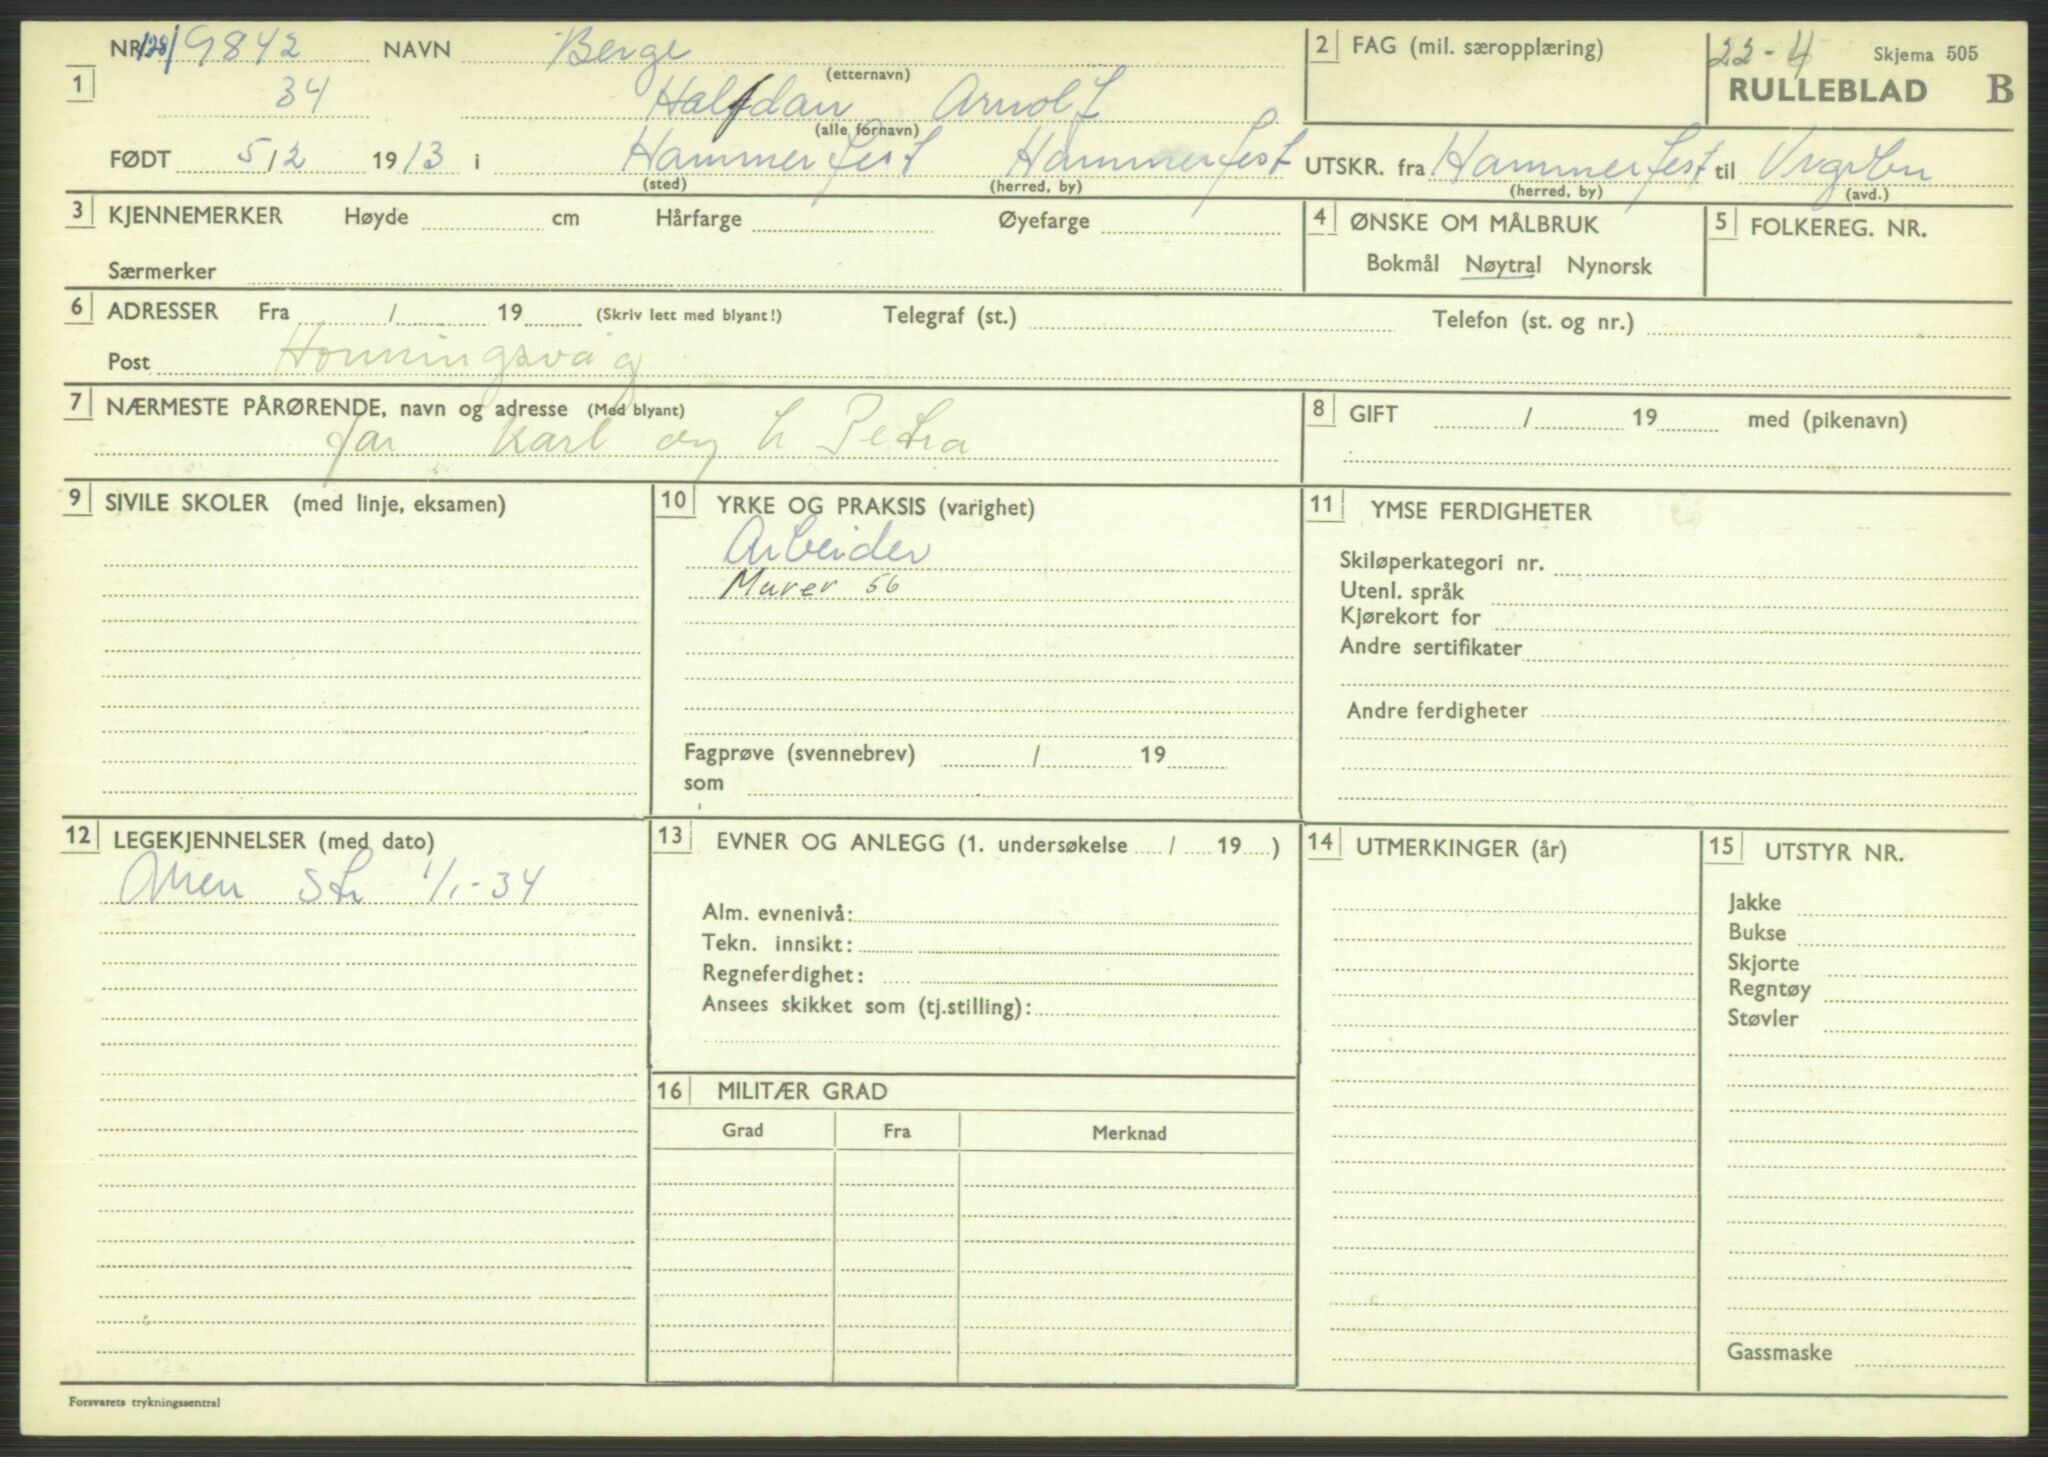 NR. 128/9842 NAVN Berge
(etternavn)
1 34 Halfdan Arnolf
(alle fornavn)
FØDT 5/2 1913 i Hammerfest Hammerfest
(sted) (herred, by)
2 FAG (mil. særopplæring)
22-4 Skjema 505
RULLEBLAD B
UTSKR. fra Hammerfest til
(herred, by) (avd.)
3 KJENNEMERKER Høyde cm Hårfarge Øyefarge
Særmerker
4 ØNSKE OM MÅLBRUK
Bokmål Nøytral Nynorsk
5 FOLKEREG. NR.
6 ADRESSER Fra / 19 (Skriv lett med blyant!) Telegraf (st.) Telefon (st. og nr.)
Post Honningsvåg
7 NÆRMESTE PÅRØRENDE, navn og adresse (Med blyant)
far Karl og h Petra
8 GIFT / 19 med (pikenavn)
9 SIVILE SKOLER (med linje, eksamen)
10 YRKE OG PRAKSIS (varighet)
Arbeider
Murer 56
Fagprøve (svennebrev) / 19
som
11 YMSE FERDIGHETER
Skiløperkategori nr.
Utenl. språk
Kjørekort for
Andre sertifikater
Andre ferdigheter
12 LEGEKJENNELSER (med dato)
str 1/1-34
13 EVNER OG ANLEGG (1. undersøkelse / 19 )
Alm. evnenivå:
Tekn. innsikt:
Regneferdighet:
Ansees skikket som (tj.stilling):
14 UTMERKINGER (år)
15 UTSTYR NR.
Jakke
Bukse
Skjorte
Regntøy
Støvler
Gassmaske
16 MILITÆR GRAD
Grad Fra Merknad
Forsvarets trykningssentral